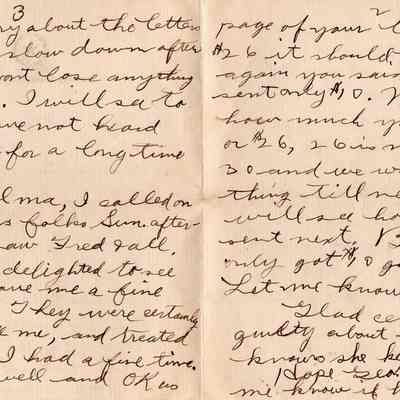 3
ry about the letters
slow down after
won't lose anything
. I will sa to
ave not heard
s for a long time
lma, I called on
s folks Sun. after-
saw Fred & all.
delighted to see
ave me a fine
They were certainly
e me, and treated
I had a fine time.
well and OK as
2
page of your l
$26 it should
again you said
sent only $10. N
how much y
or $26, 26 is n
30 and we w
thing till m
will sa ho
sent next,
only got $10 g
Let me know
Glad ce
guilty about
knows she ke
Hope Geo
me know if h